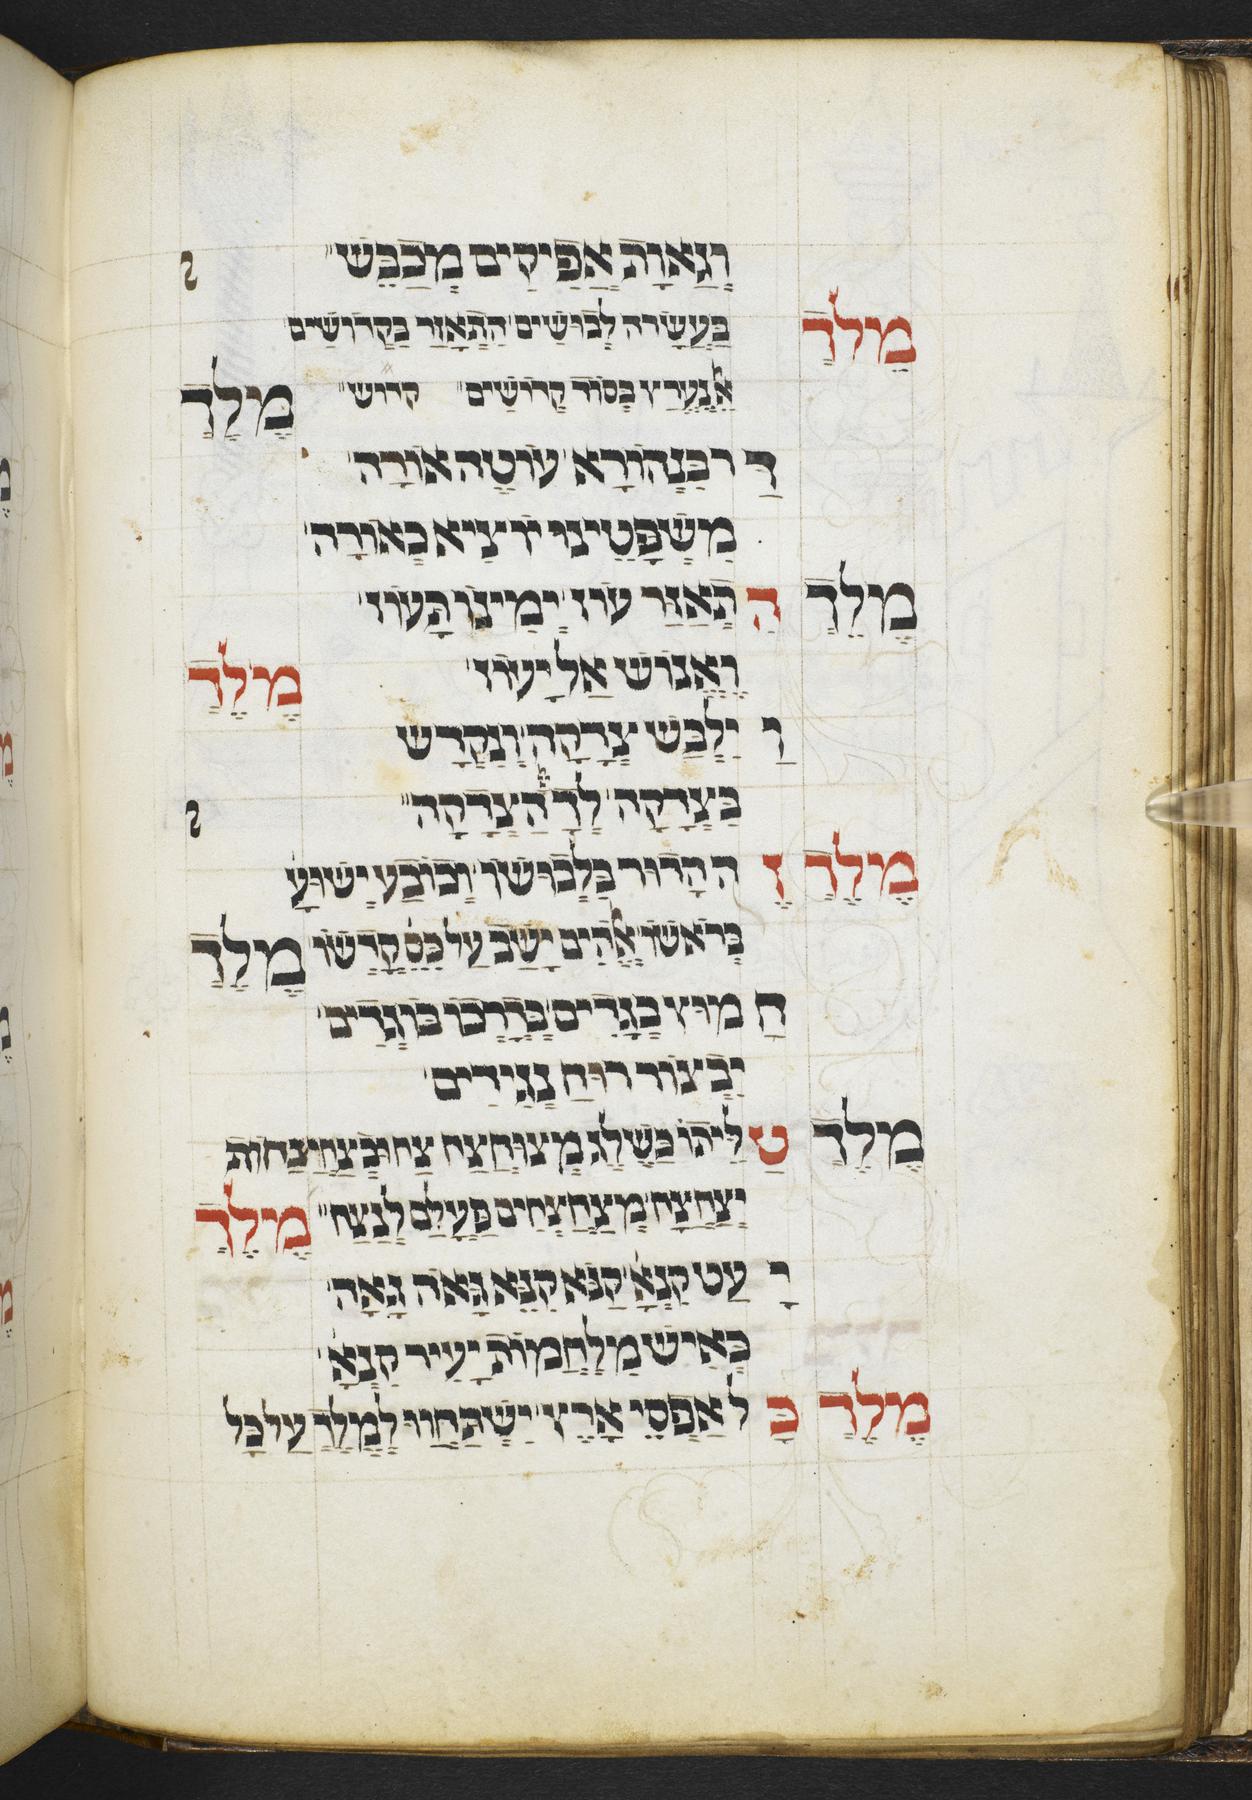 וְגַאֲוַת אֲפִיקִים מְכַבֵּשׁ׳׳
מֶלֶךְ בַּעֲשָׂרָה לְבוּשִׁים׳ הִתְאַזַּר בַּקְדוֹשִׁים
אֵל נַעֲרָץ בְּסוֹד קְדוֹשִׁים׳׳ קדוש׳׳ מֶלֶךְ
דָּר בִּנְהוֹרָא׳ עוֹטֶה אוֹרָה׳
מִשְׁפָּטֵינוּ יוֹצִיא כָּאוֹרָה׳
מֶלֶךְ הִתְאַזֵּר עוֹז׳ יְמִינוֹ תָּעוֹז׳
וֶאֱנוֹשׁ אַל יָעוֹז׳ מֶלֶךְ
וַיִלְבַּשׁ צְדָקָה׳ וְנִקְדָּשׁ
בַּצְדָקָה׳ לְךָ יי הַצְדָקָה׳׳
מֶלֶךְ זֶה הָדוּר בִּלְבוּשׁוֹ׳ וְכוֹבַע יְשׁוּעָ
בְּרֹאשׁוֹ׳ אֱלֹהִים יָשַׁב עַל כִּסֵּ קָדְשׁוֹ מֶלֶךְ
חֲמוּץ בְּגָדִים׳ בְּדָרְכוֹ בּוֹגְדִים׳
יִבְצוֹר רוּחַ נְגִידִים׳
מֶלֶךְ טַלֵּיהוּ כַּשֶּׁלֶג מְצוּחְצַח צַח וּבְצַחְצָחוֹת
יְצַחְצָח׳ מְצַחְצְחִים בַּפָּעֳלָם לָנֶצַח׳׳ מֶלֶךְ
יָעַט קִנְאָ׳ קַנֹּא קִנֵּא גָּאֹה גָּאָה׳
כְּאִישׁ מִלְחֲמוֹת יָעִיר קִנְאָ׳
מֶלֶךְ כָּל אַפְסֵי אָרֶץ׳ יִשְׁתַּחֲווּ לְמֶלֶךְ עַל כָּל